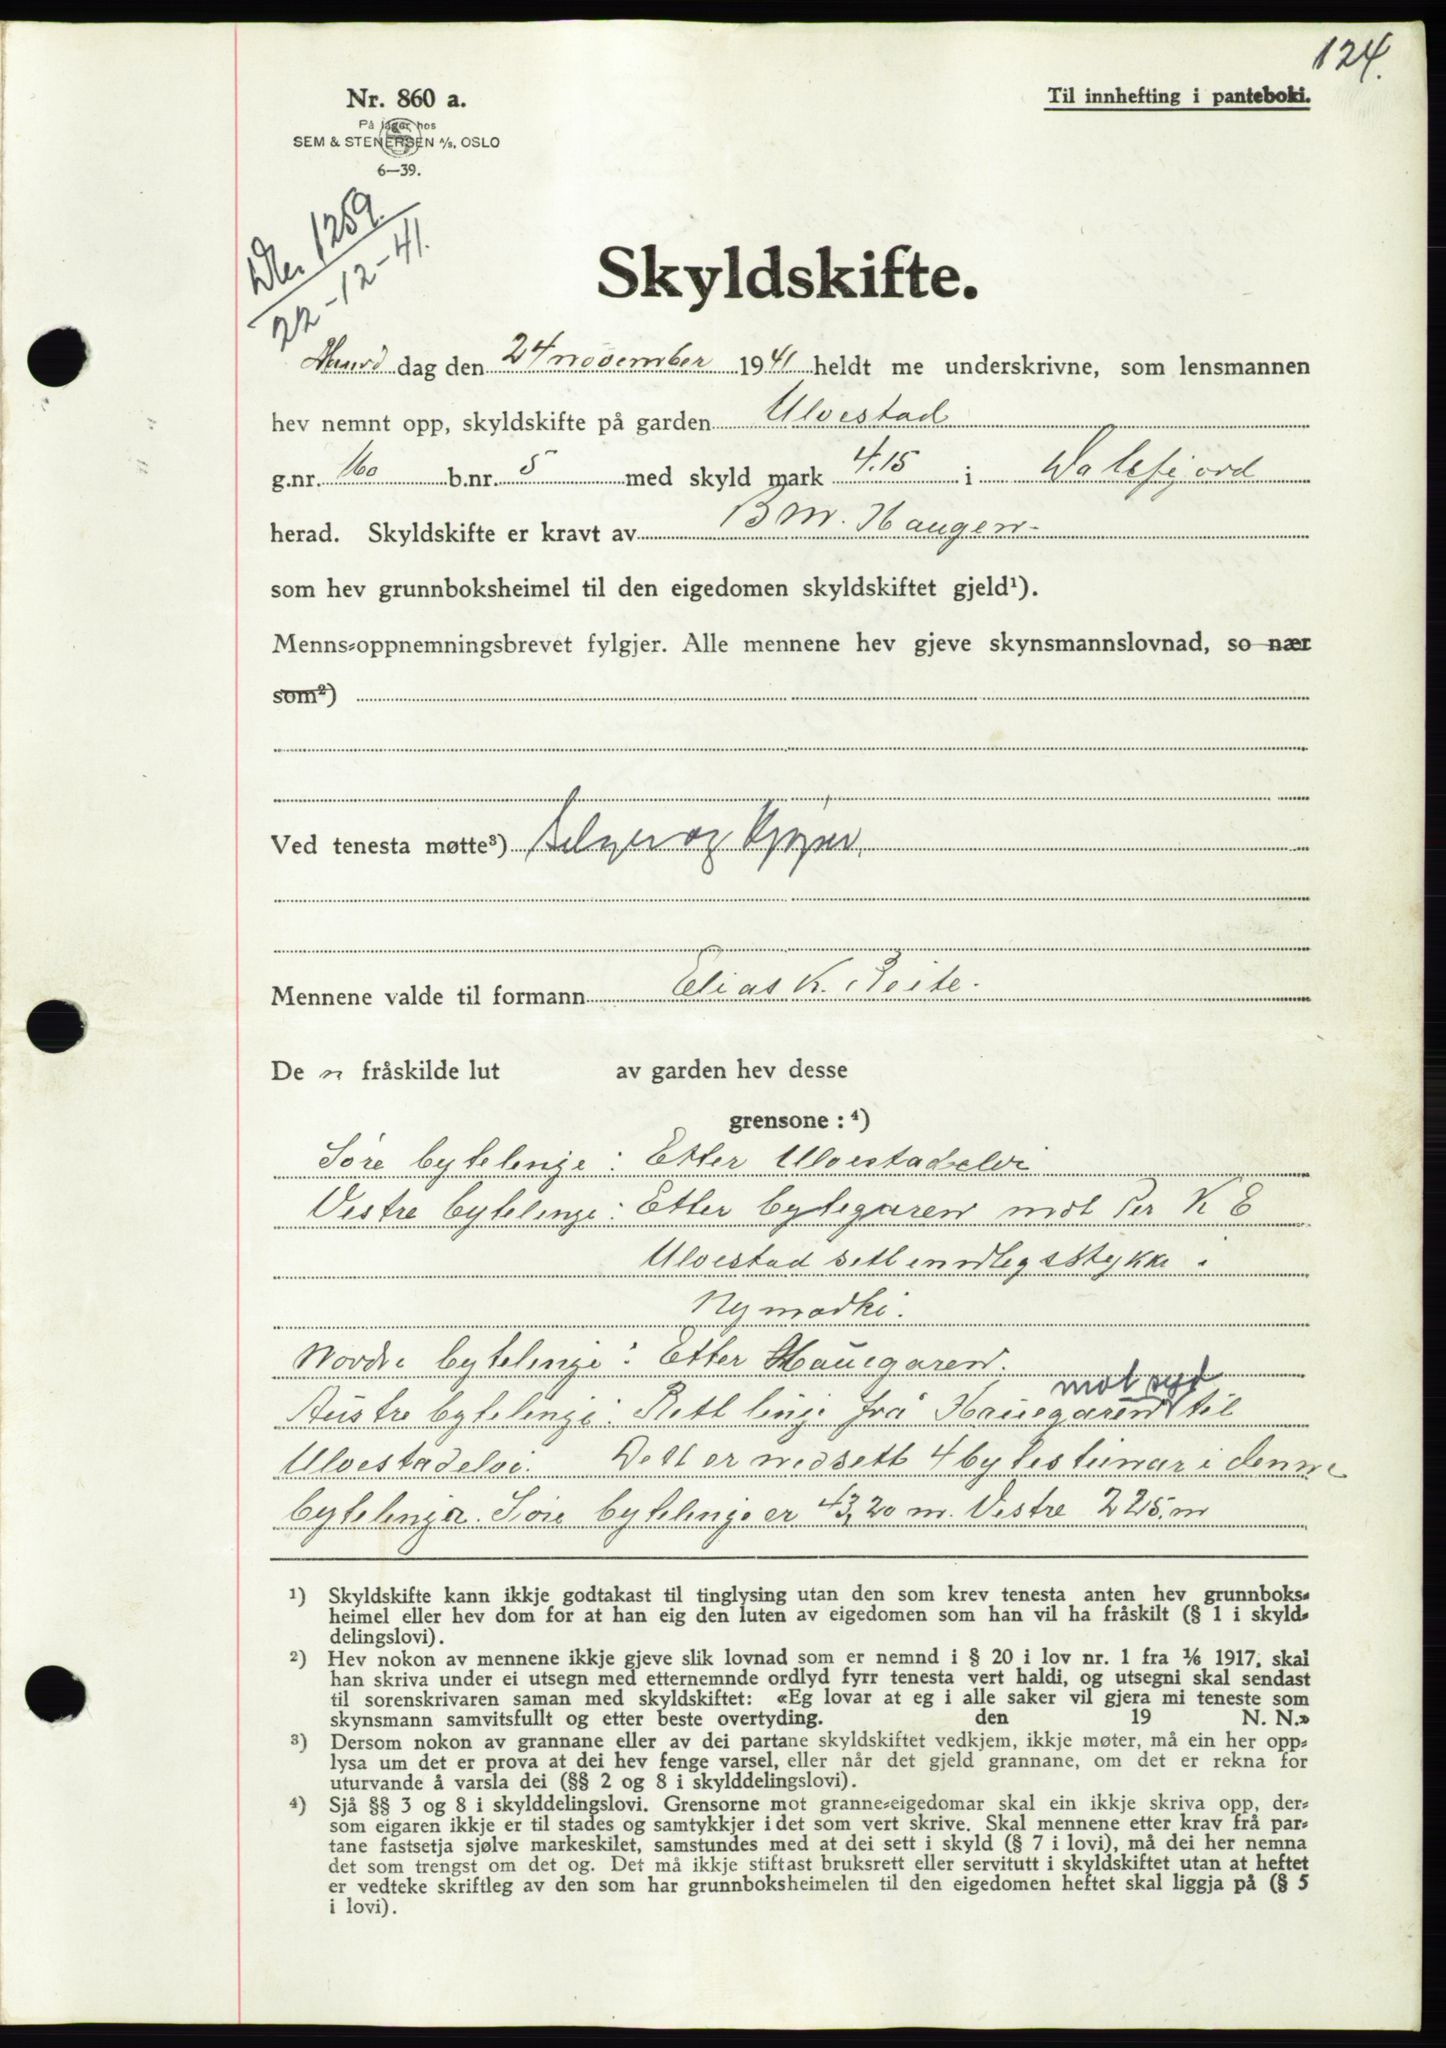 124.
Nr. 860 a.
Til innhefting i panteboki.
På lager hos
SEM & STENERSEN A/S, OSLO
6—39.
1259.
22-12-41.
Skyldskifte.
dag den 24 november 1941 heldt me underskrivne, som lensmannen
hev nemnt opp, skyldskifte på garden Ulvestad
g.nr. 160 b.nr. 5 med skyld mark 4.15 i Dalsfjord
herad. Skyldskifte er kravt av B M. Haugen-
som hev grunnboksheimel til den eigedomen skyldskiftet gjeld¹).
Menns-oppnemningsbrevet fylgjer. Alle mennene hev gjeve skynsmannslovnad, so nær
som²)
Ved tenesta møtte³) Selger og kjøper.
Mennene valde til formann Elias K. Reite.
De n fråskilde lut av garden hev desse
grensone : ⁴)
Søre bytelinje : Etter Ulvestadelvi
Vestre bytelinje : Etter bytegaren mot Per K E
Ulvestad sett innlegsstykke i
Nymodki.
Nordre bytelinje : Etter Hauegaren.
mot syd
Austre bytelinje : Rett linje frå Hauegaren til
Ulvestadelvi. Dett er nedsett 4 bytesteinar i denne
bytelinja. Søre bytelinje er 43,20 m. Vestre 225 m
¹) Skyldskifte kann ikkje godtakast til tinglysing utan den som krev tenesta anten hev grunnboks-
heimel eller hev dom for at han eig den luten av eigedomen som han vil ha fråskilt (§ 1 i skyld-
delingslovi).
²) Hev nokon av mennene ikkje gjeve slik lovnad som er nemnd i § 20 i lov nr. 1 fra 1/6 1917, skal
han skriva under ei utsegn med etternemnde ordlyd fyrr tenesta vert haldi, og utsegni skal sendast
til sorenskrivaren saman med skyldskiftet: «Eg lovar at eg i alle saker vil gjera mi teneste som
skynsmann samvitsfullt og etter beste overtyding. den 19 N. N.»
³) Dersom nokon av grannane eller av dei partane skyldskiftet vedkjem, ikkje møter, må ein her opp-
lysa um det er prova at dei hev fenge varsel, eller når det gjeld grannane, om det er rekna for
uturvande å varsla dei (§§ 2 og 8 i skylddelingslovi).
⁴) Sjå §§ 3 og 8 i skylddelingslovi. Grensorne mot granne-eigedomar skal ein ikkje skriva opp, der-
som eigaren ikkje er til stades og samtykkjer i det som vert skrive. Skal mennene etter krav frå par-
tane fastsetja sjølve markeskilet, samstundes med at dei sett i skyld (§ 7 i lovi), må dei her nemna
det som trengst om det og. Det må ikkje stiftast bruksrett eller servitutt i skyldskiftet utan at heftet
er vedteke skriftleg av den som har grunnboksheimelen til den eigedomen heftet skal liggja på (§ 5
i lovi).